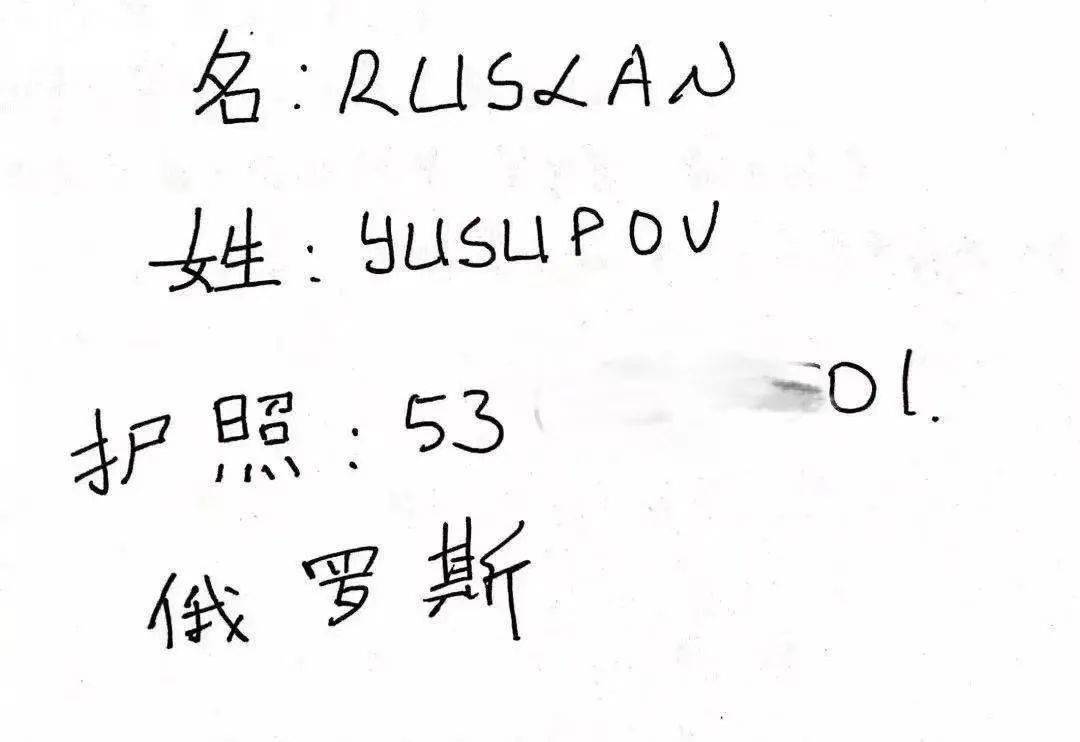 名: RUSLAN
姓: YUSUPOV
护照: 53 01.
俄罗斯